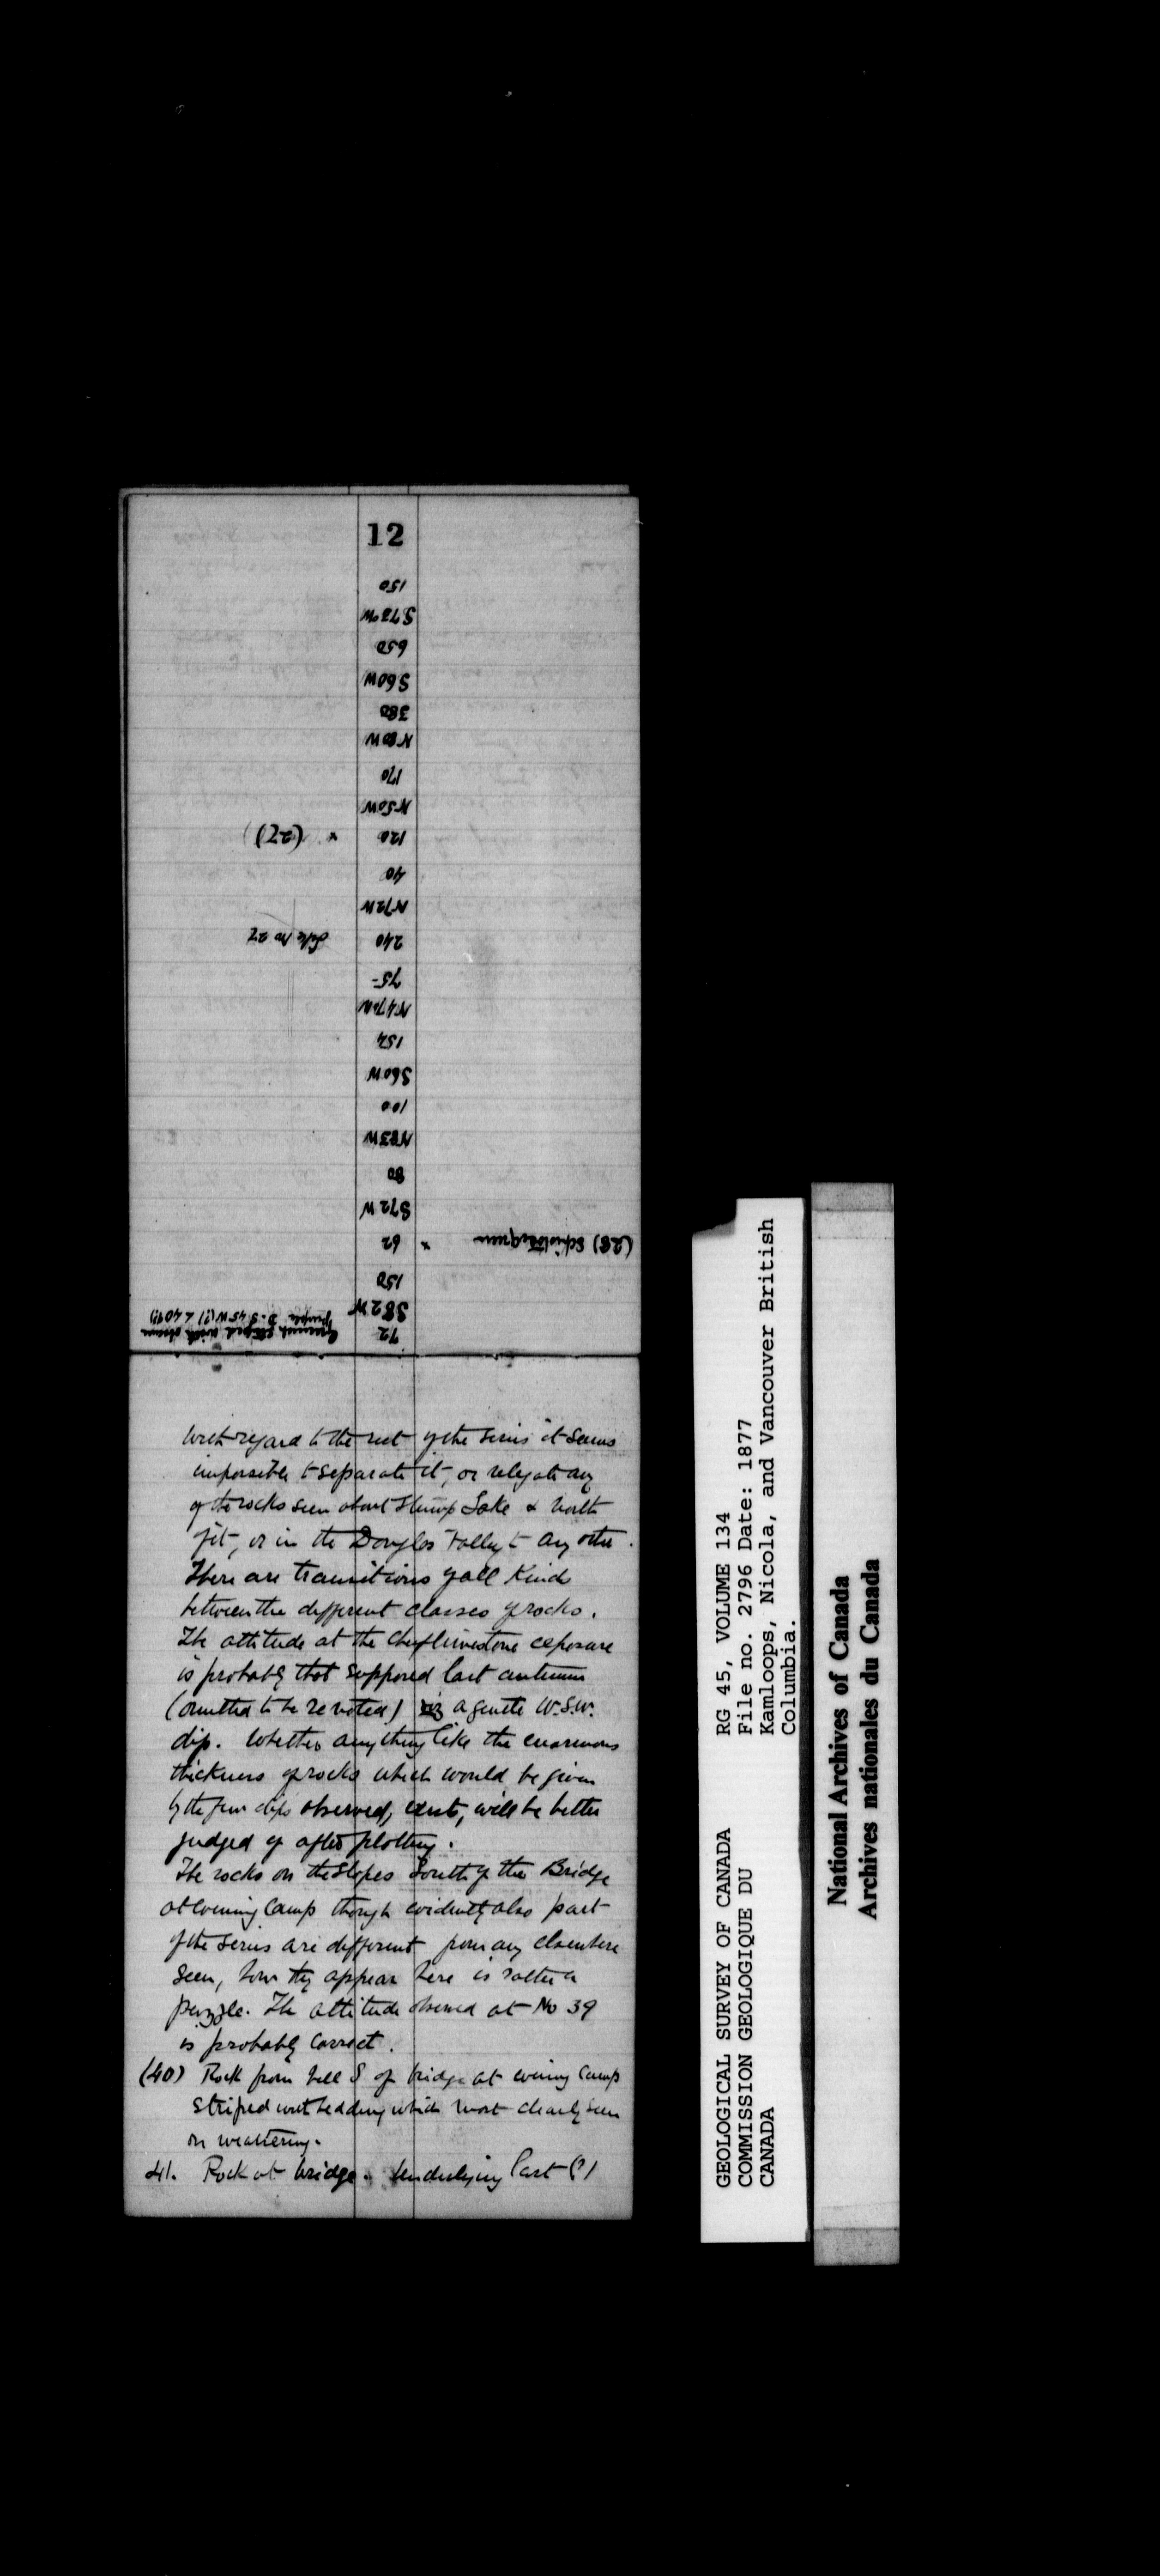 12
150
S 72 W
650
S 60 W
380
N 80 W
170
N 50 W
120 x (27)
40
N 72 W
240 like No 27
75
N 47 W
154
S 60 W
100
N 83 W
80
S 72 W
(28) x 62
150
S 82 W
72
With regard to the rest of the series it seems
impossible to separate it, or relegate any
of the rocks seen about Stump Lake & North
of it, or in the Douglas Valley to any other.
There are transitions of all Kinds
between the different classes of rocks.
The attitude at the limestone exposure
is probably that supposed last autumn
(omitted to be re noted) viz a gentle W.S.W.
dip. Whether anything like the enormous
thickness of rocks which would be given
by the few dips observed, exists, will be better
judged of after plotting.
The rocks on the slopes South of the Bridge
at evening Camp though evidently also part
of the series are different from any elsewhere
seen, how they appear here is rather a
puzzle. The attitude observed at No 39
is probably correct.
(40) Rock from hill S of bridge at evening Camp
striped with bedding which most clearly seen
on weathering.
41. Rock at bridge. Underlying last (?)
GEOLOGICAL SURVEY OF CANADA
COMMISSION GEOLOGIQUE DU
CANADA
RG 45, VOLUME 134
File no. 2796 Date: 1877
Kamloops, Nicola, and Vancouver British
Columbia.
National Archives of Canada
Archives nationales du Canada